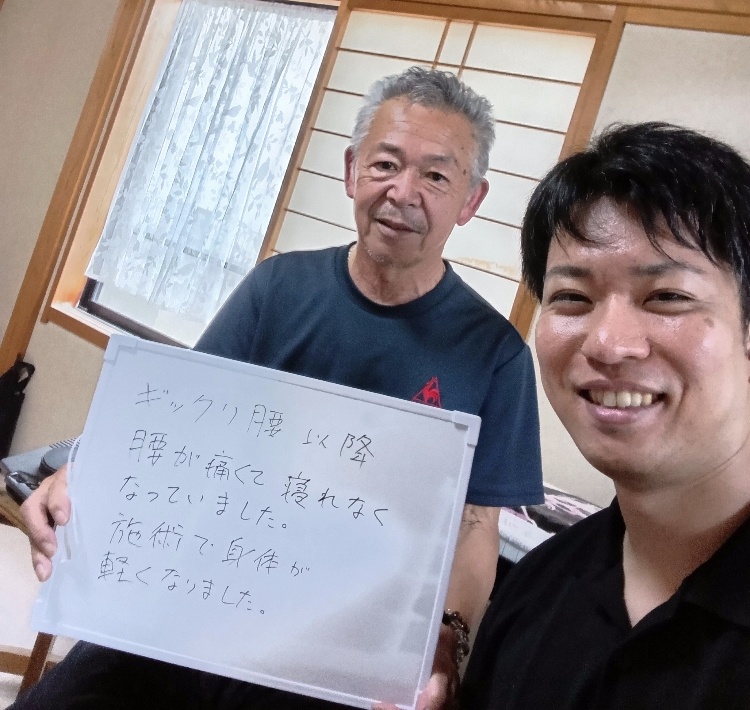 ギックリ腰 以降
腰が痛くて 寝れなく
なっていました。
施術で身体が
軽くなりました。